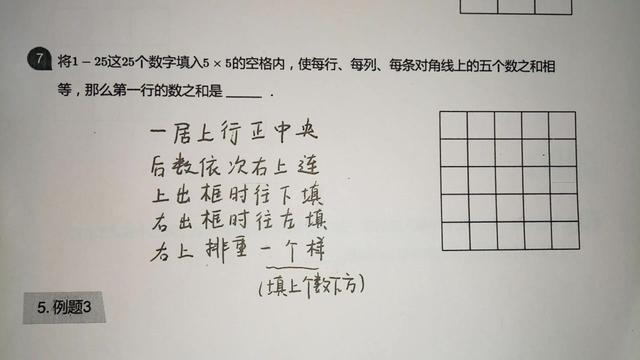 7 将1-25这25个数字填入5×5的空格内，使每行、每列、每条对角线上的五个数之和相
等，那么第一行的数之和是_____．
一居上行正中央
后数依次右上连
上出框时往下填
右出框时往左填
右上排重一个样
(填上个数下方)
5. 例题3